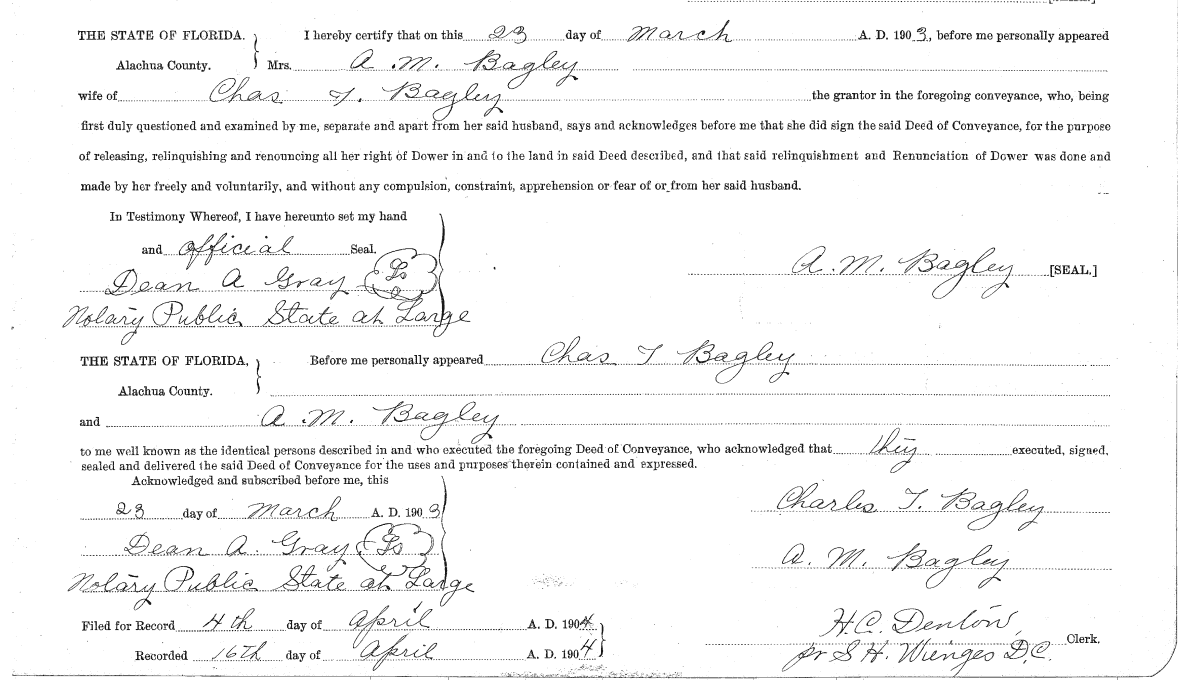 THE STATE OF FLORIDA. I hereby certify that on this 23 day of March A. D. 1903, before me personally appeared
Alachua County. Mrs. A. M. Bagley
wife of Chas T. Bagley the grantor in the foregoing conveyance, who, being
first duly questioned and examined by me, separate and apart from her said husband, says and acknowledges before me that she did sign the said Deed of Conveyance, for the purpose
of releasing, relinquishing and renouncing all her right of Dower in and to the land in said Deed described, and that said relinquishment and Renunciation of Dower was done and
made by her freely and voluntarily, and without any compulsion, constraint, apprehension or fear of or from her said husband.
In Testimony Whereof, I have hereunto set my hand
and official Seal.
A. M. Bagley [SEAL.]
Dean A Gray Ls
Notary Public State at Large
THE STATE OF FLORIDA, Before me personally appeared Chas T Bagley
Alachua County.
and A. M. Bagley
to me well known as the identical persons described in and who executed the foregoing Deed of Conveyance, who acknowledged that they executed, signed,
sealed and delivered the said Deed of Conveyance for the uses and purposes therein contained and expressed.
Acknowledged and subscribed before me, this
23 day of March A. D. 1903
Charles T. Bagley
Dean A. Gray Ls
A. M. Bagley
Notary Public State at Large
Filed for Record 4th day of April A. D. 1904
H. C. Denton, Clerk.
Recorded 16th day of April A. D. 1904
pr S. H. Wienges D.C.